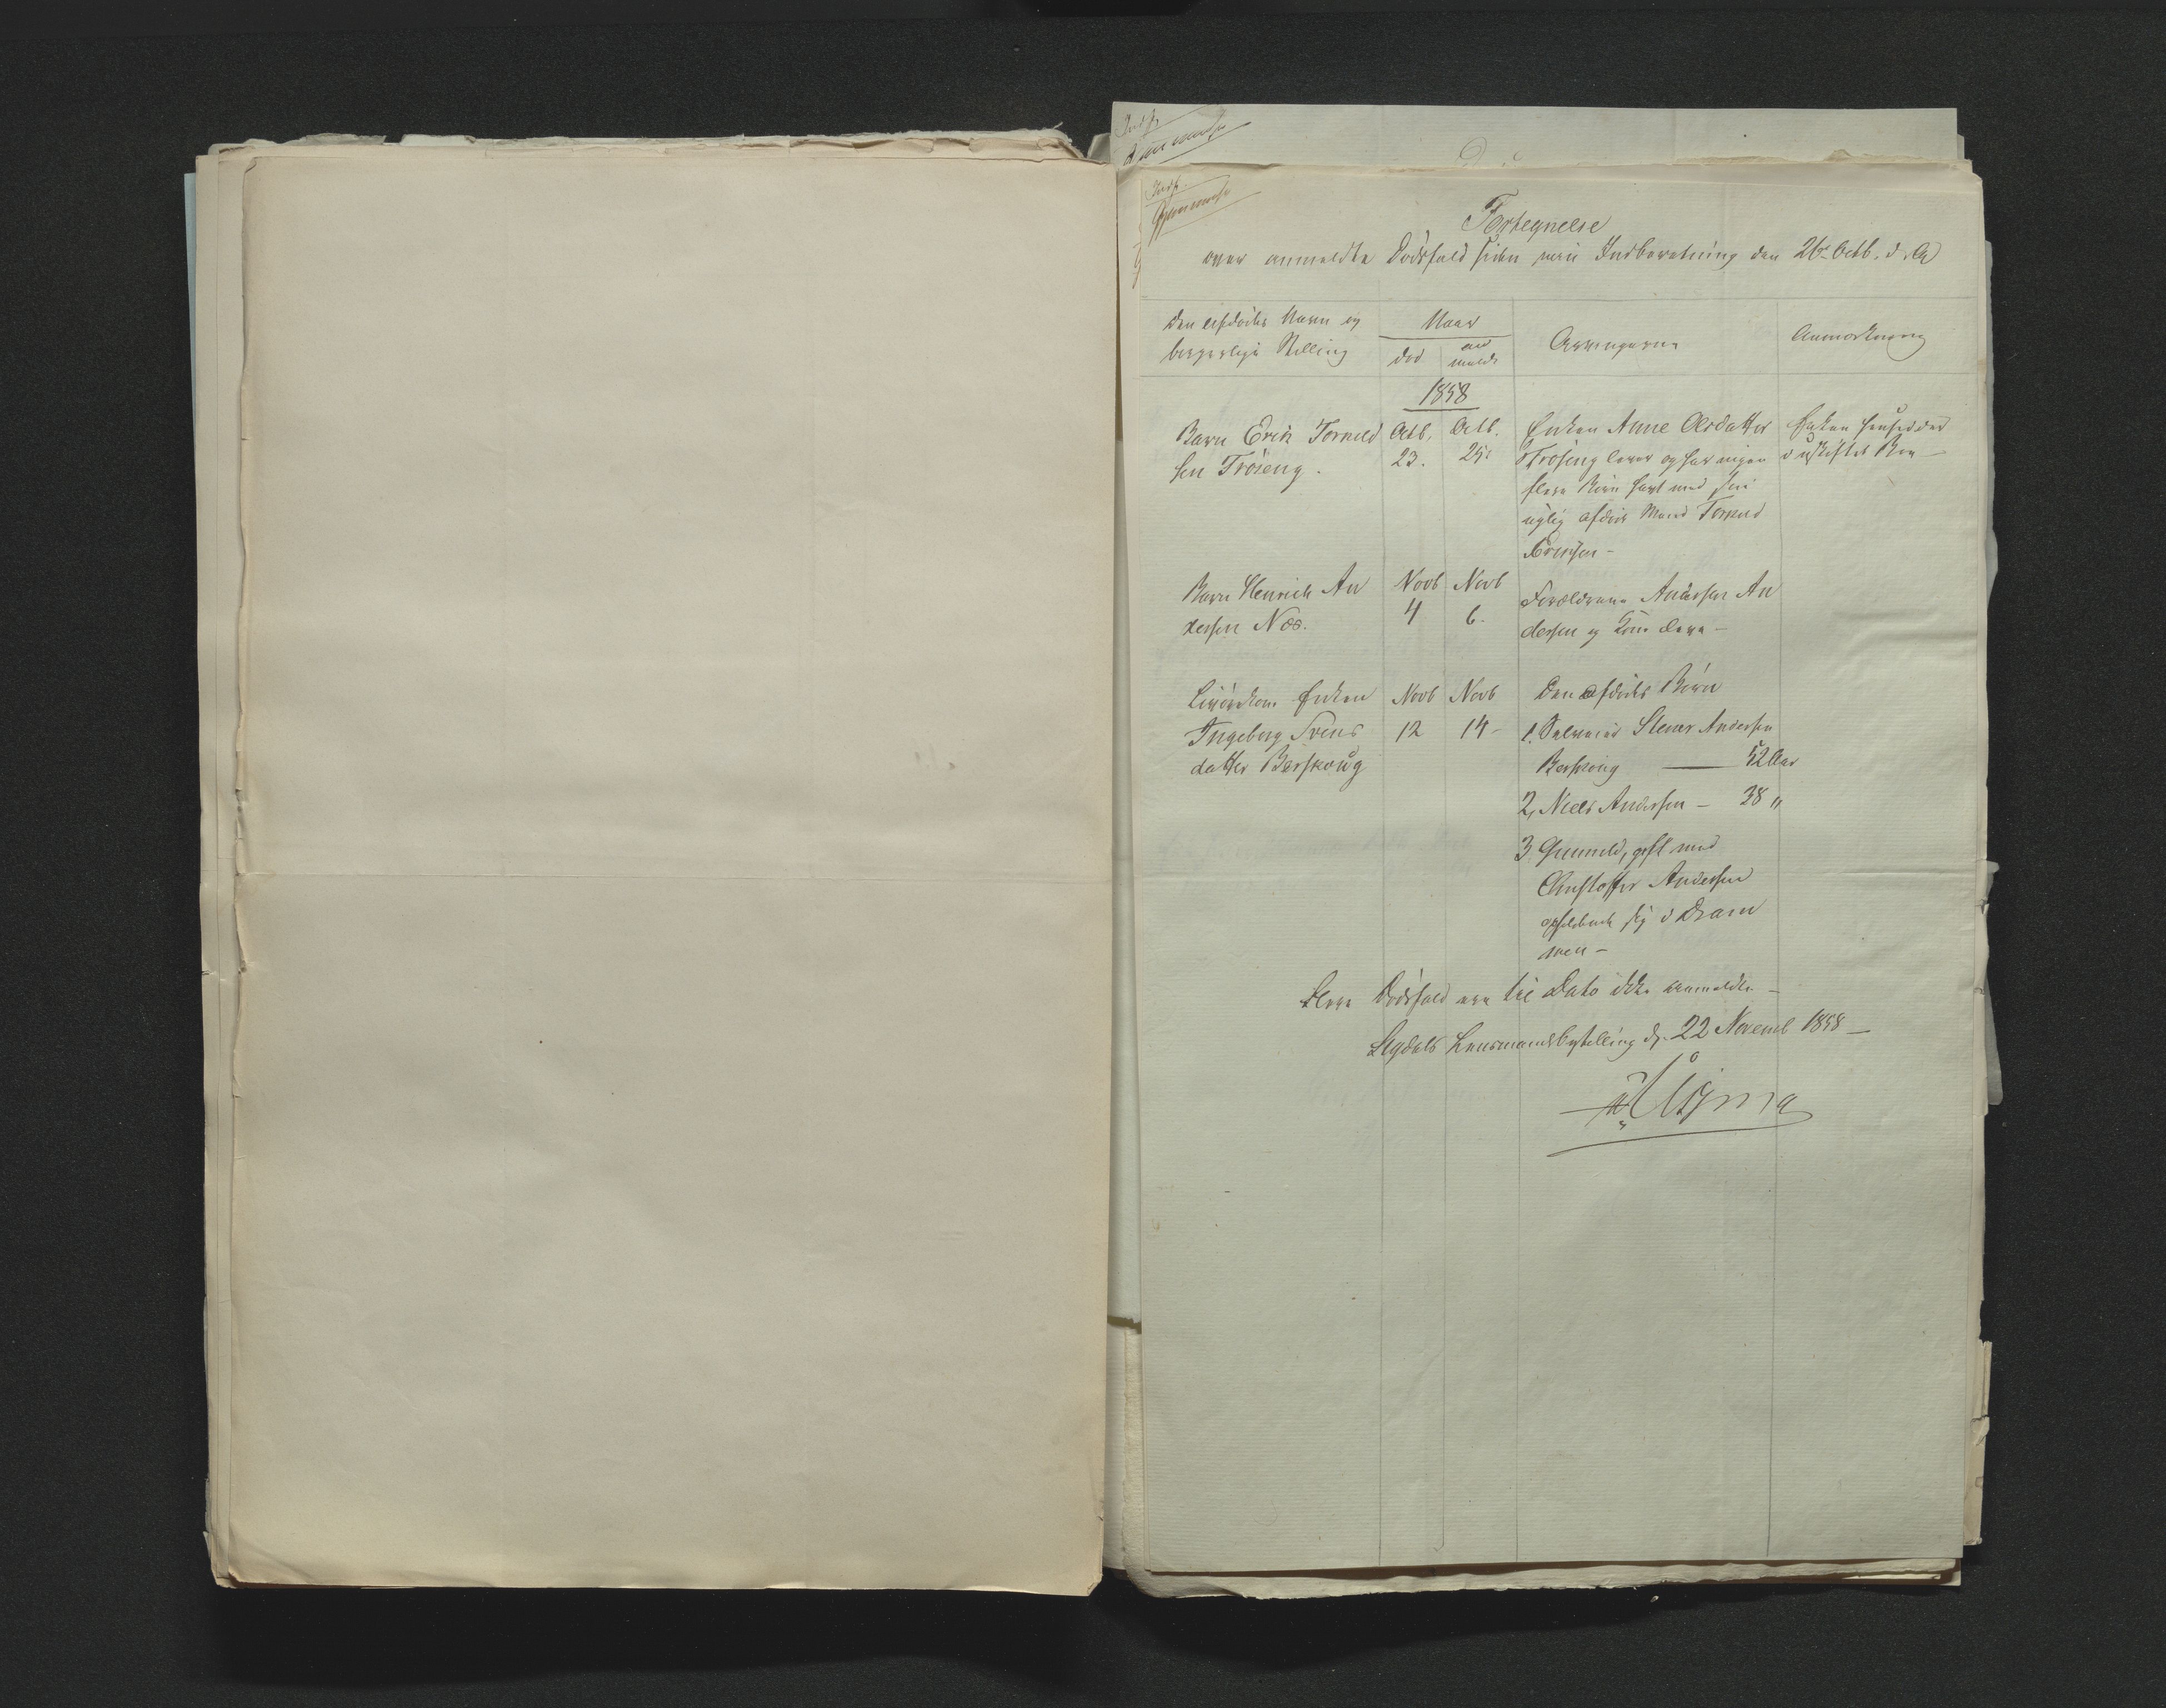 Indf.
Indf.
Fortegnelse
over anmeldte Dödsfald siden min Indberetning den 26de Octb. d. A
Den afdödes Navn og
borgerlige Stilling
Naar
död
an
meldt
Arvingerne
Anmærkning
1858
Barn Erik Torkild
sen Tröieng.
Octb.
23.
Octb.
25
Enken Anne Olsdatter
Tröieng lever og har ingen
flere Börn havt med sin
nylig afdöde Mand Torkild
Eriksen -
Enken hensidder
i uskiftet Bo -
Barn Henrich An
dersen Næs.
Novb
4
Novb
6.
Forældrene Andersen An
dersen og Kone leve -
Enken
Ingeborg Svens
datter Berskoug
Novb
12
Novb
14 -
Den afdödes Börn
1. Stener Andersen
Berskoug — 42 Aar
2, Niels Andersen - 38 "
3 Gunnild, gift med
Christoffer Andersen
opholdende sig i Dram
men -
Flere Dödsfald ere til Dato ikke anmeldte -
Sigdals Lensmandsbestilling d. 22 Novemb 1858 -